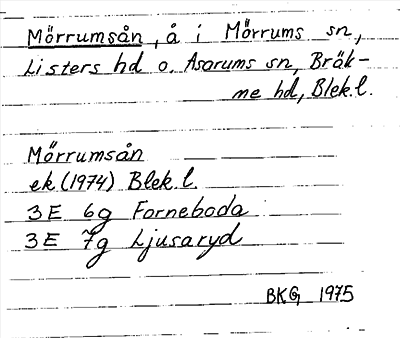 Mörrumsån, å i Mörrums sn,
Listers hd o. Asarums sn, Bräk-
ne hd, Blek.l.
Mörrumsån
ek (1974) Blek.l.
3E 6g Forneboda
3E 7g Ljusaryd
BKG 1975